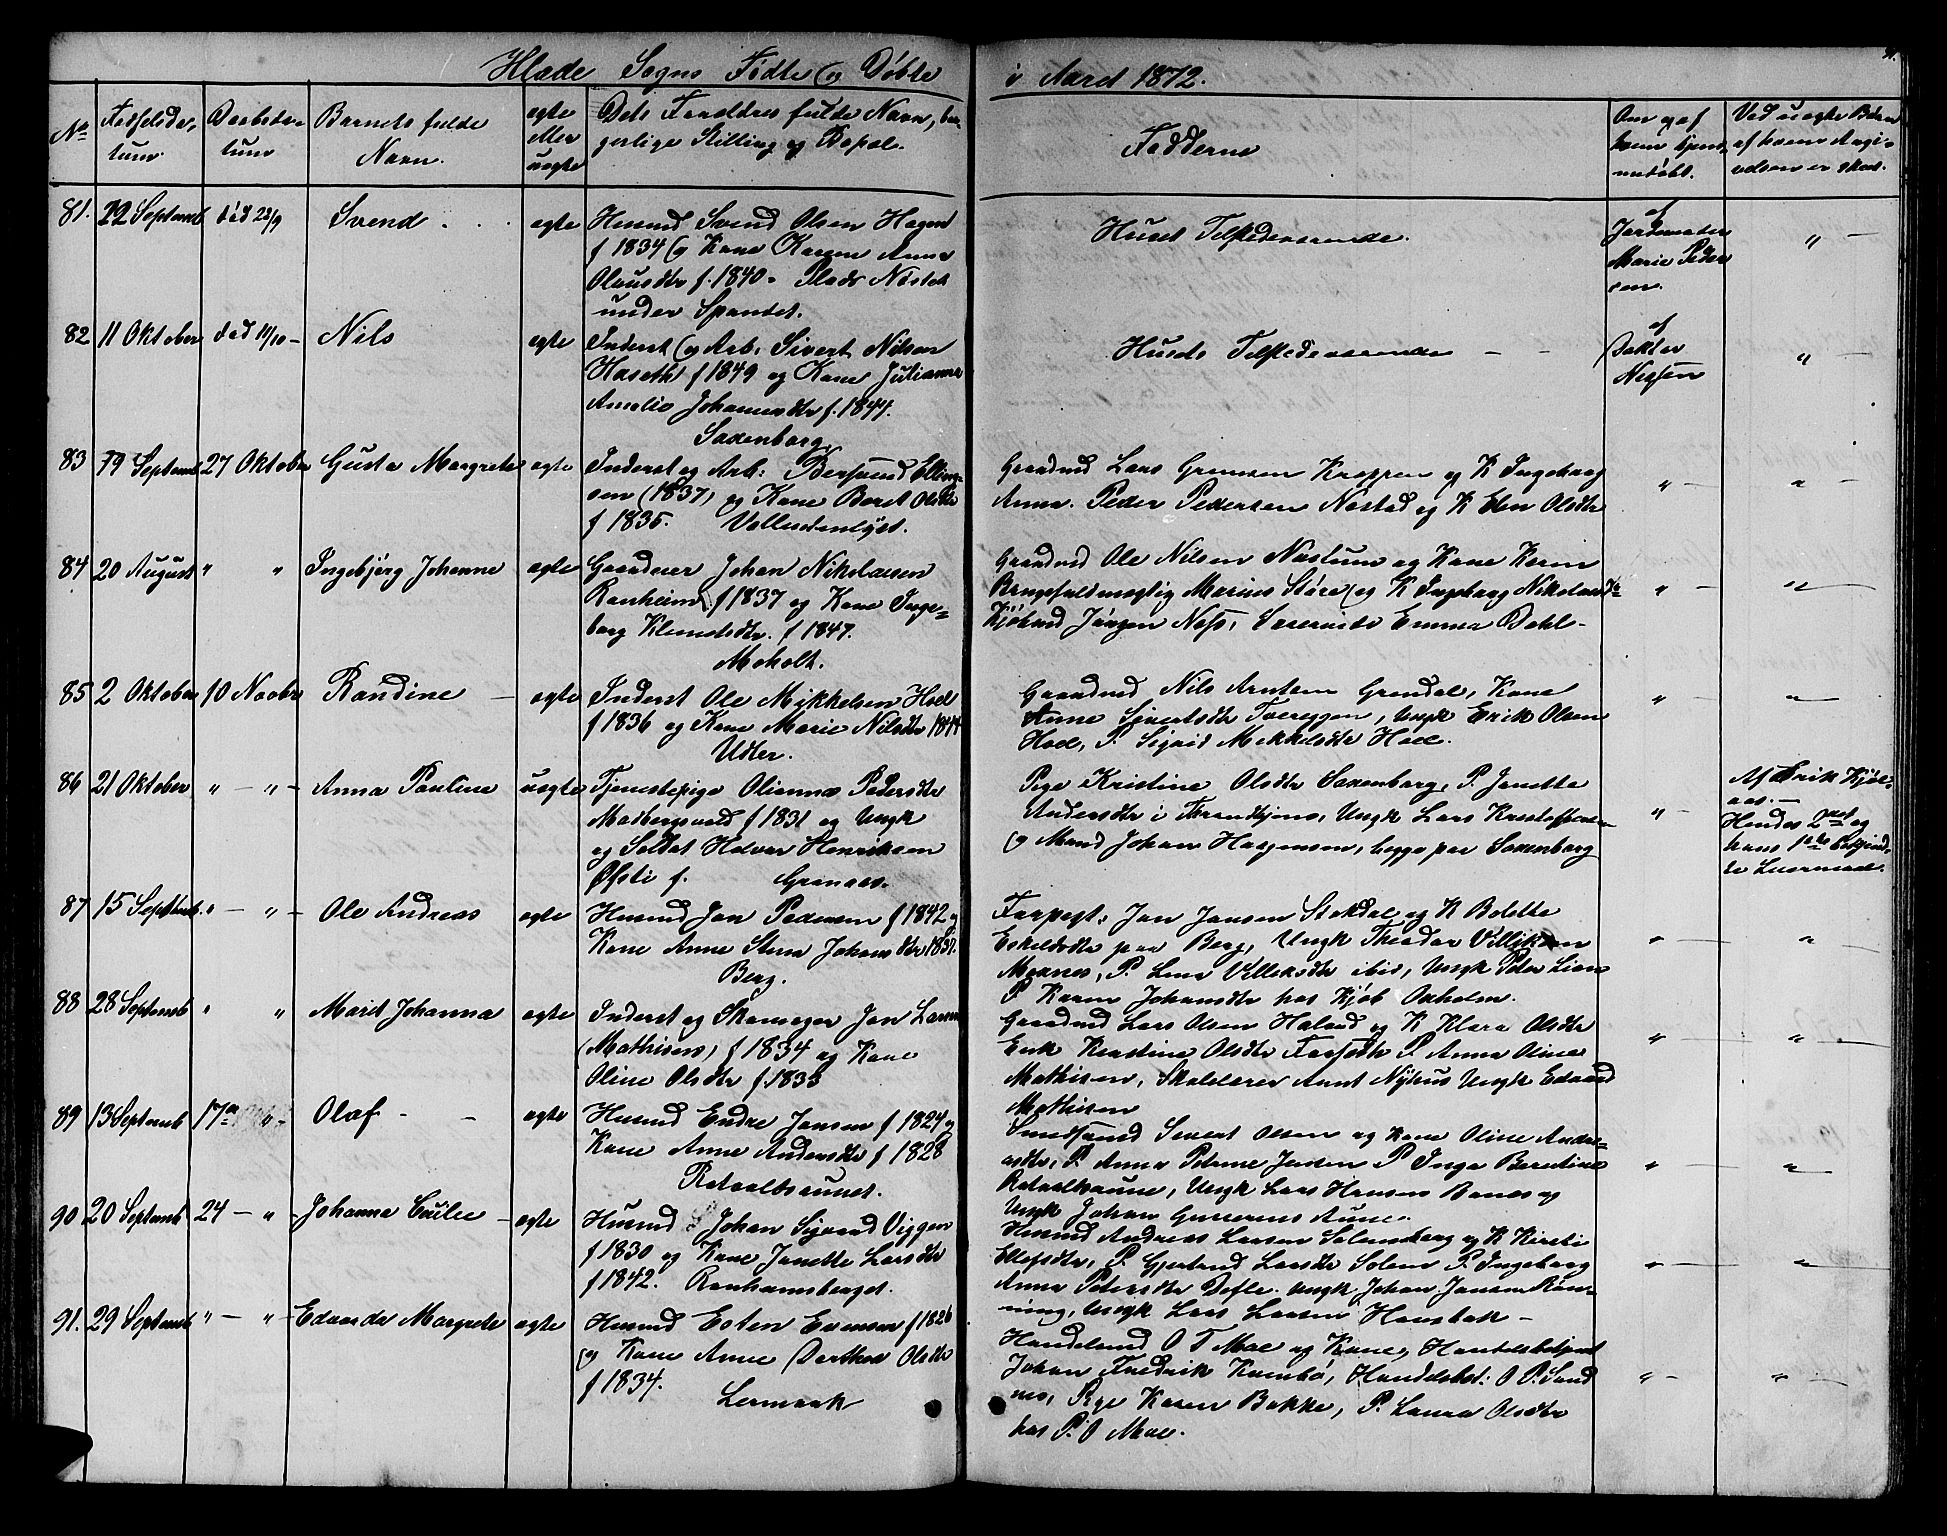 Hlade Sogns Fødte og Døbte i Aaret 1872.
No Fødselsda-tum. Daabsda-tum Barnets fulde Navn. ægte eller uægte Det's Forældres fulde Navn, bor-gerlige Stilling og Bopæl. Fadderne Om og af hvem hjem-medøbt. Ved uægte Børn af hvem Angi-velsen er skeet.
81. 22 Septemb død 23/9 Svend ægte Husmd Svend Olsen Hagen
f 1834 og Kone Karen Anna
Olausdtr f. 1840 - Plads Næstet
under Spandet.
Huset Tilstedeværende.
af Jordmoder
Marie Peder
sen.
"
82 11 Oktober død 11/10 - Nils ægte Inderst og Arb. Sivert Nilsen
Haseth f 1849 og Kone Julianna
Amalie Johannesdtr f. 1844.
Saxenborg
Husets Tilstedeværende
af
Doktor
Nissen
"
83 19 Septemb 27 Oktober Gusta Margrete ægte Inderst og Arb: Bersvend Elling-
sen (1837) og Kone Beret Olsdtr
f 1835. Vollustenlyst.
Gaardmd Lars Grensen Kroppen og K Ingeborg
Anna. Peder Pedersen Nostad og K Elen Olsdtr
" "
84 20 August " " Ingebjørg Johanne ægte Gaardeier Johan Nikolaisen
Ranheim f 1837 og Kone Inge-
borg Klemetsdtr. f 1847.
Moholt.
Gaardmd Ole Nilsen Nostum og Kone Karen
Brugsfuldmægtig Marius Støre og K Ingeborg Nikolaisdtr
Kjøbmd Jørgen Næss, Emma Dahl-
" "
85 2 Oktober 10 Novbr Randine ægte Inderst Ole Mykkelsen Hoel
f 1836 og Kone Marie Nilsdtr 1844
Udler.
Gaardmd Nils Arntsen Grendal, Kone
Anne Sivertsdtr Tvereggen, Ungk Erik Olsen
Hoel, P. Sigrid Mekkelsdtr Hoel.
" "
86 21 Oktober " - " - Anna Pauline uægte Tjenestepige Olianna Pedersdtr
Madbergsvald f 1831 og Ungk
og Soldat Halvor Henriksen
Øfsti f. Granaas.
Pige Kristine Olsdtr Saxenborg, P. Janette
Andersdtr i Throndhjem, Ungk Lars Kristoffersen
og Mand Johan Hagensen, begge paa Saxenborg
" Af Erik Kjøl-
aas. -
Hendes 2det og
hans 1ste
Leiermaal.
87 15 Septemb. " - " - Ole Andreas ægte Husmd Jon Pedersen f 1842 og
Kone Anne Stina Johansdtr 1837.
Berg.
Forpagt. Jon Jansen Stokdal og K Bolette
Eskeldsdtr paa Berg, Ungk Theodor Villiksen
Moxnes, P. Lena Villeksdtr ibid, Ungk Peter Lian
P Karen Johansdtr hos Kjøb Oxholm.
" "
88 28 Septemb " " Marit Johanna ægte Inderst og Skomager Jon Larsen
(Mathisen) f 1834 og Kone
Oline Olsdtr f. 1835
Gaardmd Lars Olsen Haland og K Klara Olsdtr
Enk Kerstine Olsdtr P Anna Oline
Mathisen, Skolelærer Arnt Nyhus Ungk Edvard
Mathisen
" "
89 13 Septemb 17de " - Olaf - - ægte Husmd Endre Jansen f 1824 og
Kone Anne Andersdtr f 1828
Rotvoldsaunet.
Smedsvend Sivert Olsen og Kone Oline Andre-
asdtr, P. Anna Petrine Jensen P Inga Berntine
Rotvoldsaune, Ungk Lars Hansen Banos og
Ungk Johan Aune.
" "
90 20 Septemb 24 - " Johanna Emilie - ægte Husmd Johan Sigvard Viggen
f 1830 og Kone Janette Larsdtr
f 1842. Ranhamsberget.
Husmd Andreas Larsen Solemsberg og K Kirsti
Ellefsdtr, P. Gjertrud Larsdtr Solem P. Ingeborg
Anna Petersdtr Defle, Ungk Johan Jansen Røn-
ning, Ungk Lars Larsen Hansbak -
" "
91. 29 Septemb " - " - Edvarda Margrete ægte Husmd Esten Evensen f 1826
og Kone Anne Dorthea Olsdtr
f 1834.
Leermaak
Handelsmd O T Moe og Kone, Handelsbetjent
Johan Fredrik Kambø, Handelsbet: O P. Sand
nes, Pige Karen Bakke, P. Laura Olsdtr
hos P. O Moe.
" "